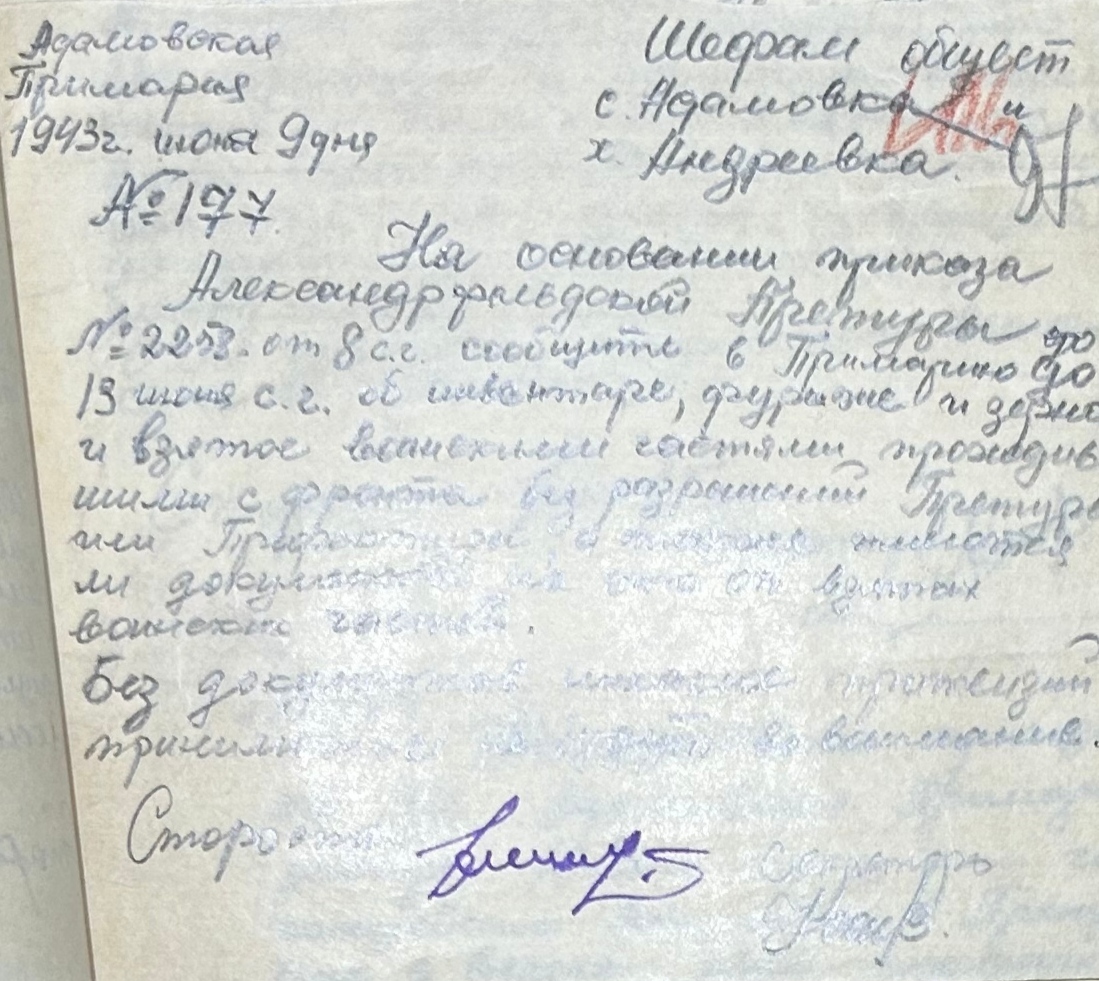 Адамовская
Примария
1943г. июня 9 дня
№ 177.
Шефам общест
с. Адамовка и
х. Андреевка.
97
На основании приказа
Александрфельдской Претуры
№ 2258. от 8 с.г. сообщить в Примарию до
13 июня с.г. об инвентаре, фураже и зерно
и взятое воинскими частями проходив
шими с фронта без разрешений Претуры
или имеются
ли документы на от взятых
воинских частей.
Без документов претензий
приниматься не будут во внимание.
Староста
Секретарь